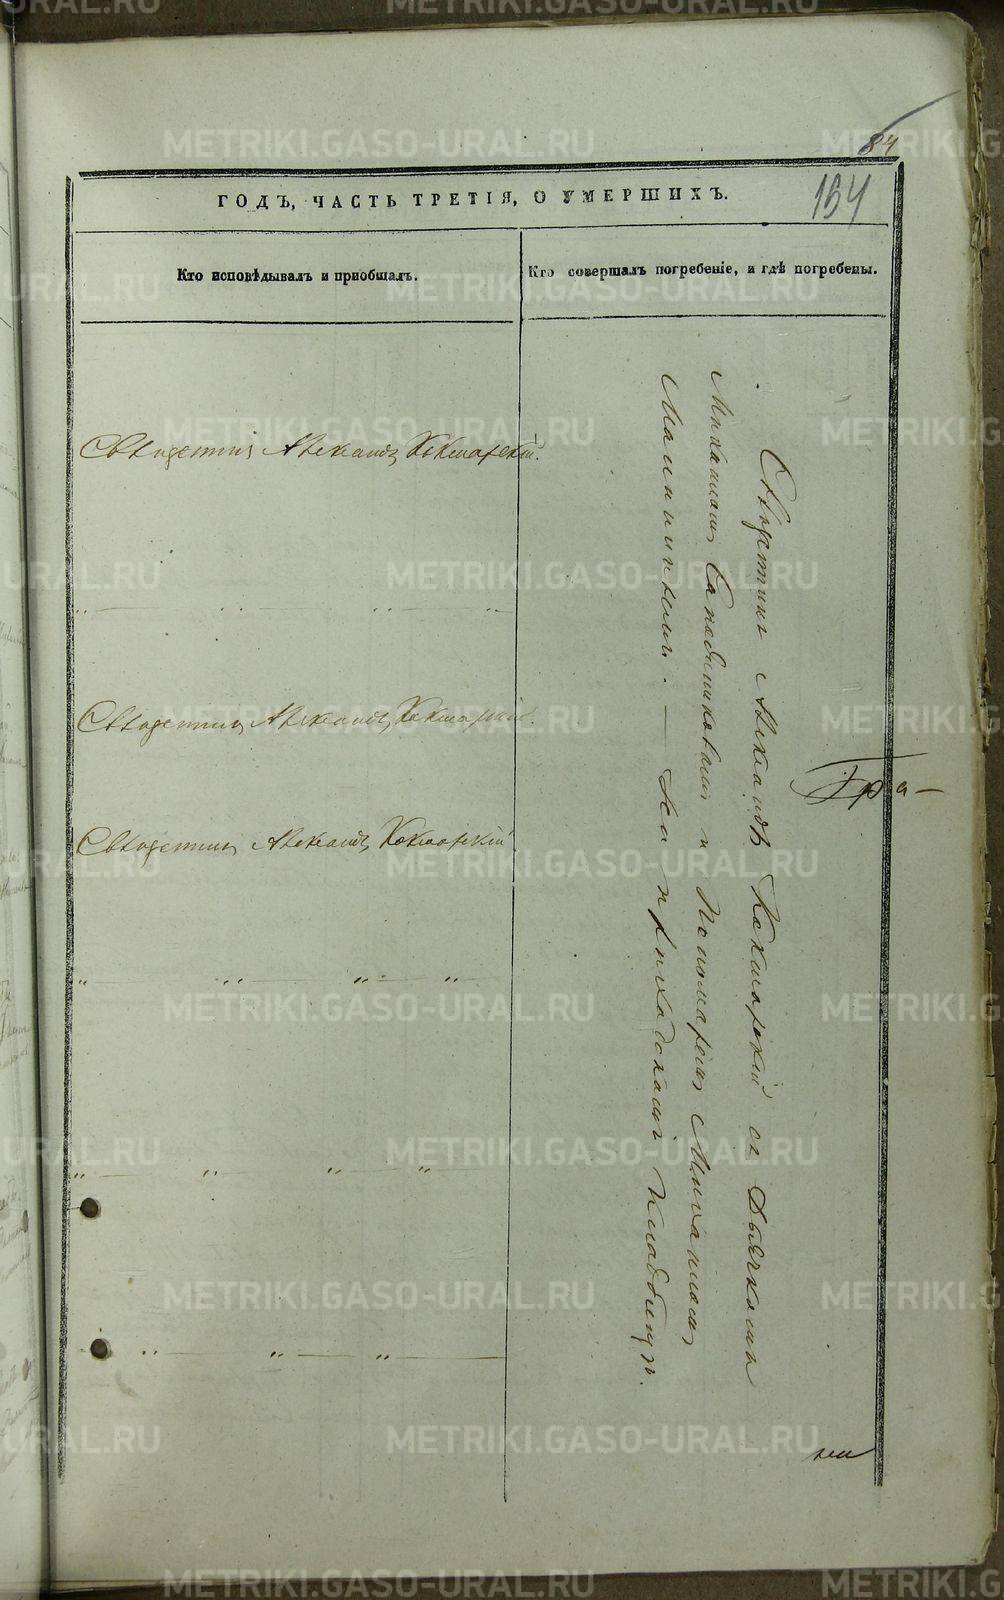 84
154
ГОДЪ, ЧАСТЬ ТРЕТІЯ, О УМЕРШИХЪ.
Кто исповѣдывалъ и пріобщалъ.
Кто совершалъ погребеніе, и гдѣ погребены.
Священникъ Александръ Кокшарскій.
Священникъ Александръ Кокшарскій.
Священникъ Александръ Кокшарскій
Священникъ Александръ Кокшарскій съ Дьячками
Михаиломъ Сапожниковымъ и Пономаремъ Михаиломъ
На приходскомъ кладбищѣ.
METRIKI.GASO-URAL.RU